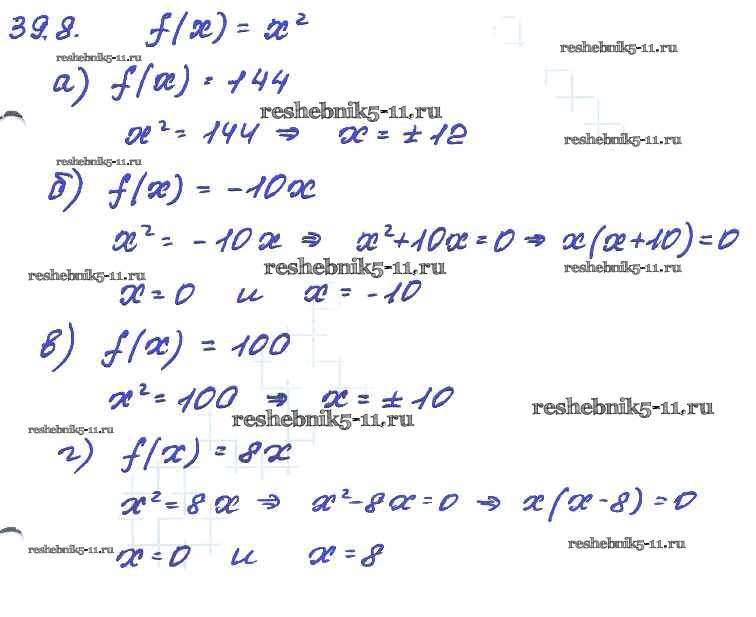 39.8. f(x) = x²
reshebnik5-11.ru
reshebnik5-11.ru
а) f(x) = 144
reshebnik5-11.ru
x² = 144 ⇒ x = ±12
reshebnik5-11.ru
reshebnik5-11.ru
б) f(x) = -10x
x² = -10x ⇒ x²+10x=0 ⇒ x(x+10)=0
reshebnik5-11.ru
reshebnik5-11.ru
reshebnik5-11.ru
x=0 и x = -10
в) f(x) = 100
x² = 100 ⇒ x = ±10
reshebnik5-11.ru
reshebnik5-11.ru
reshebnik5-11.ru
г) f(x) = 8x
x²=8x ⇒ x²-8x=0 ⇒ x(x-8)=0
reshebnik5-11.ru
reshebnik5-11.ru
x=0 и x=8